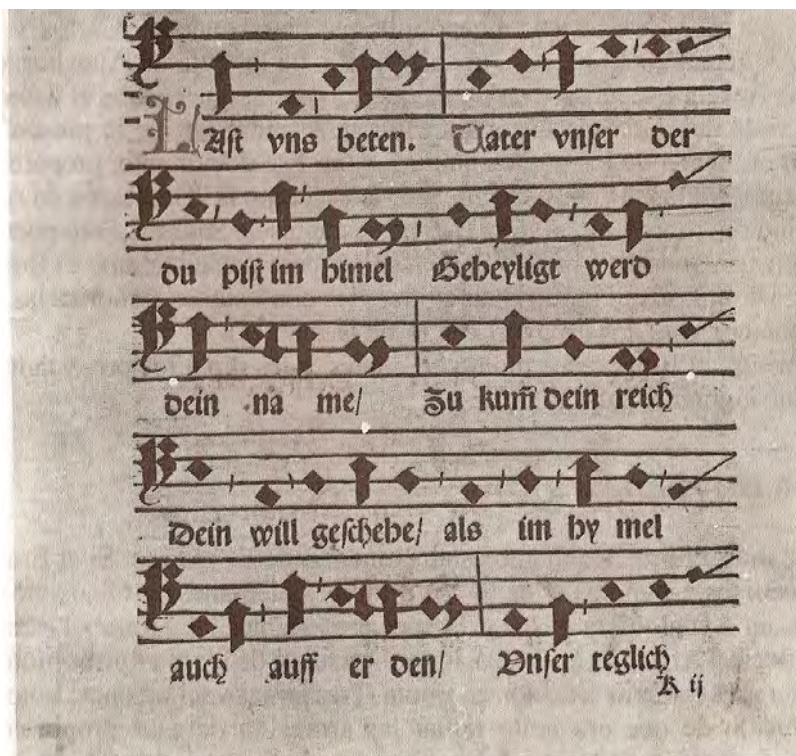 LAſt vns beten. Uater vnſer der
du piſt im himel Geheyligt werd
dein na me/ Zu kum̄ dein reich
Dein will geſchehe/ als im hy mel
auch auff er den/ Vnſer teglich
K ij